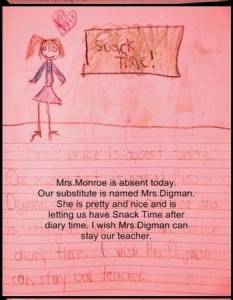 Snack
Time!
Mrs.Monroe is absent today.
Our substitute is named Mrs.Digman.
She is pretty and nice and is
letting us have Snack Time after
diary time. I wish Mrs.Digman can
stay our teacher.
diary time. I wish Mrs. Digman
can stay our teacher.